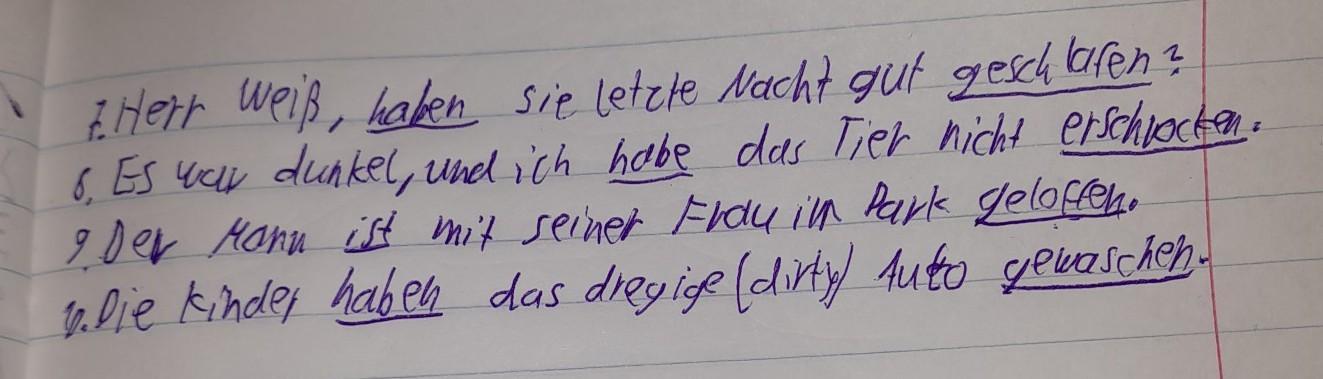 7. Herr Weiß, haben sie letzte Nacht gut geschlafen?
8. Es war dunkel, und ich habe das Tier nicht erschrocken.
9. Der Mann ist mit seiner Frau im Park geloffen.
10. Die Kinder haben das dregige (dirty) Auto gewaschen.